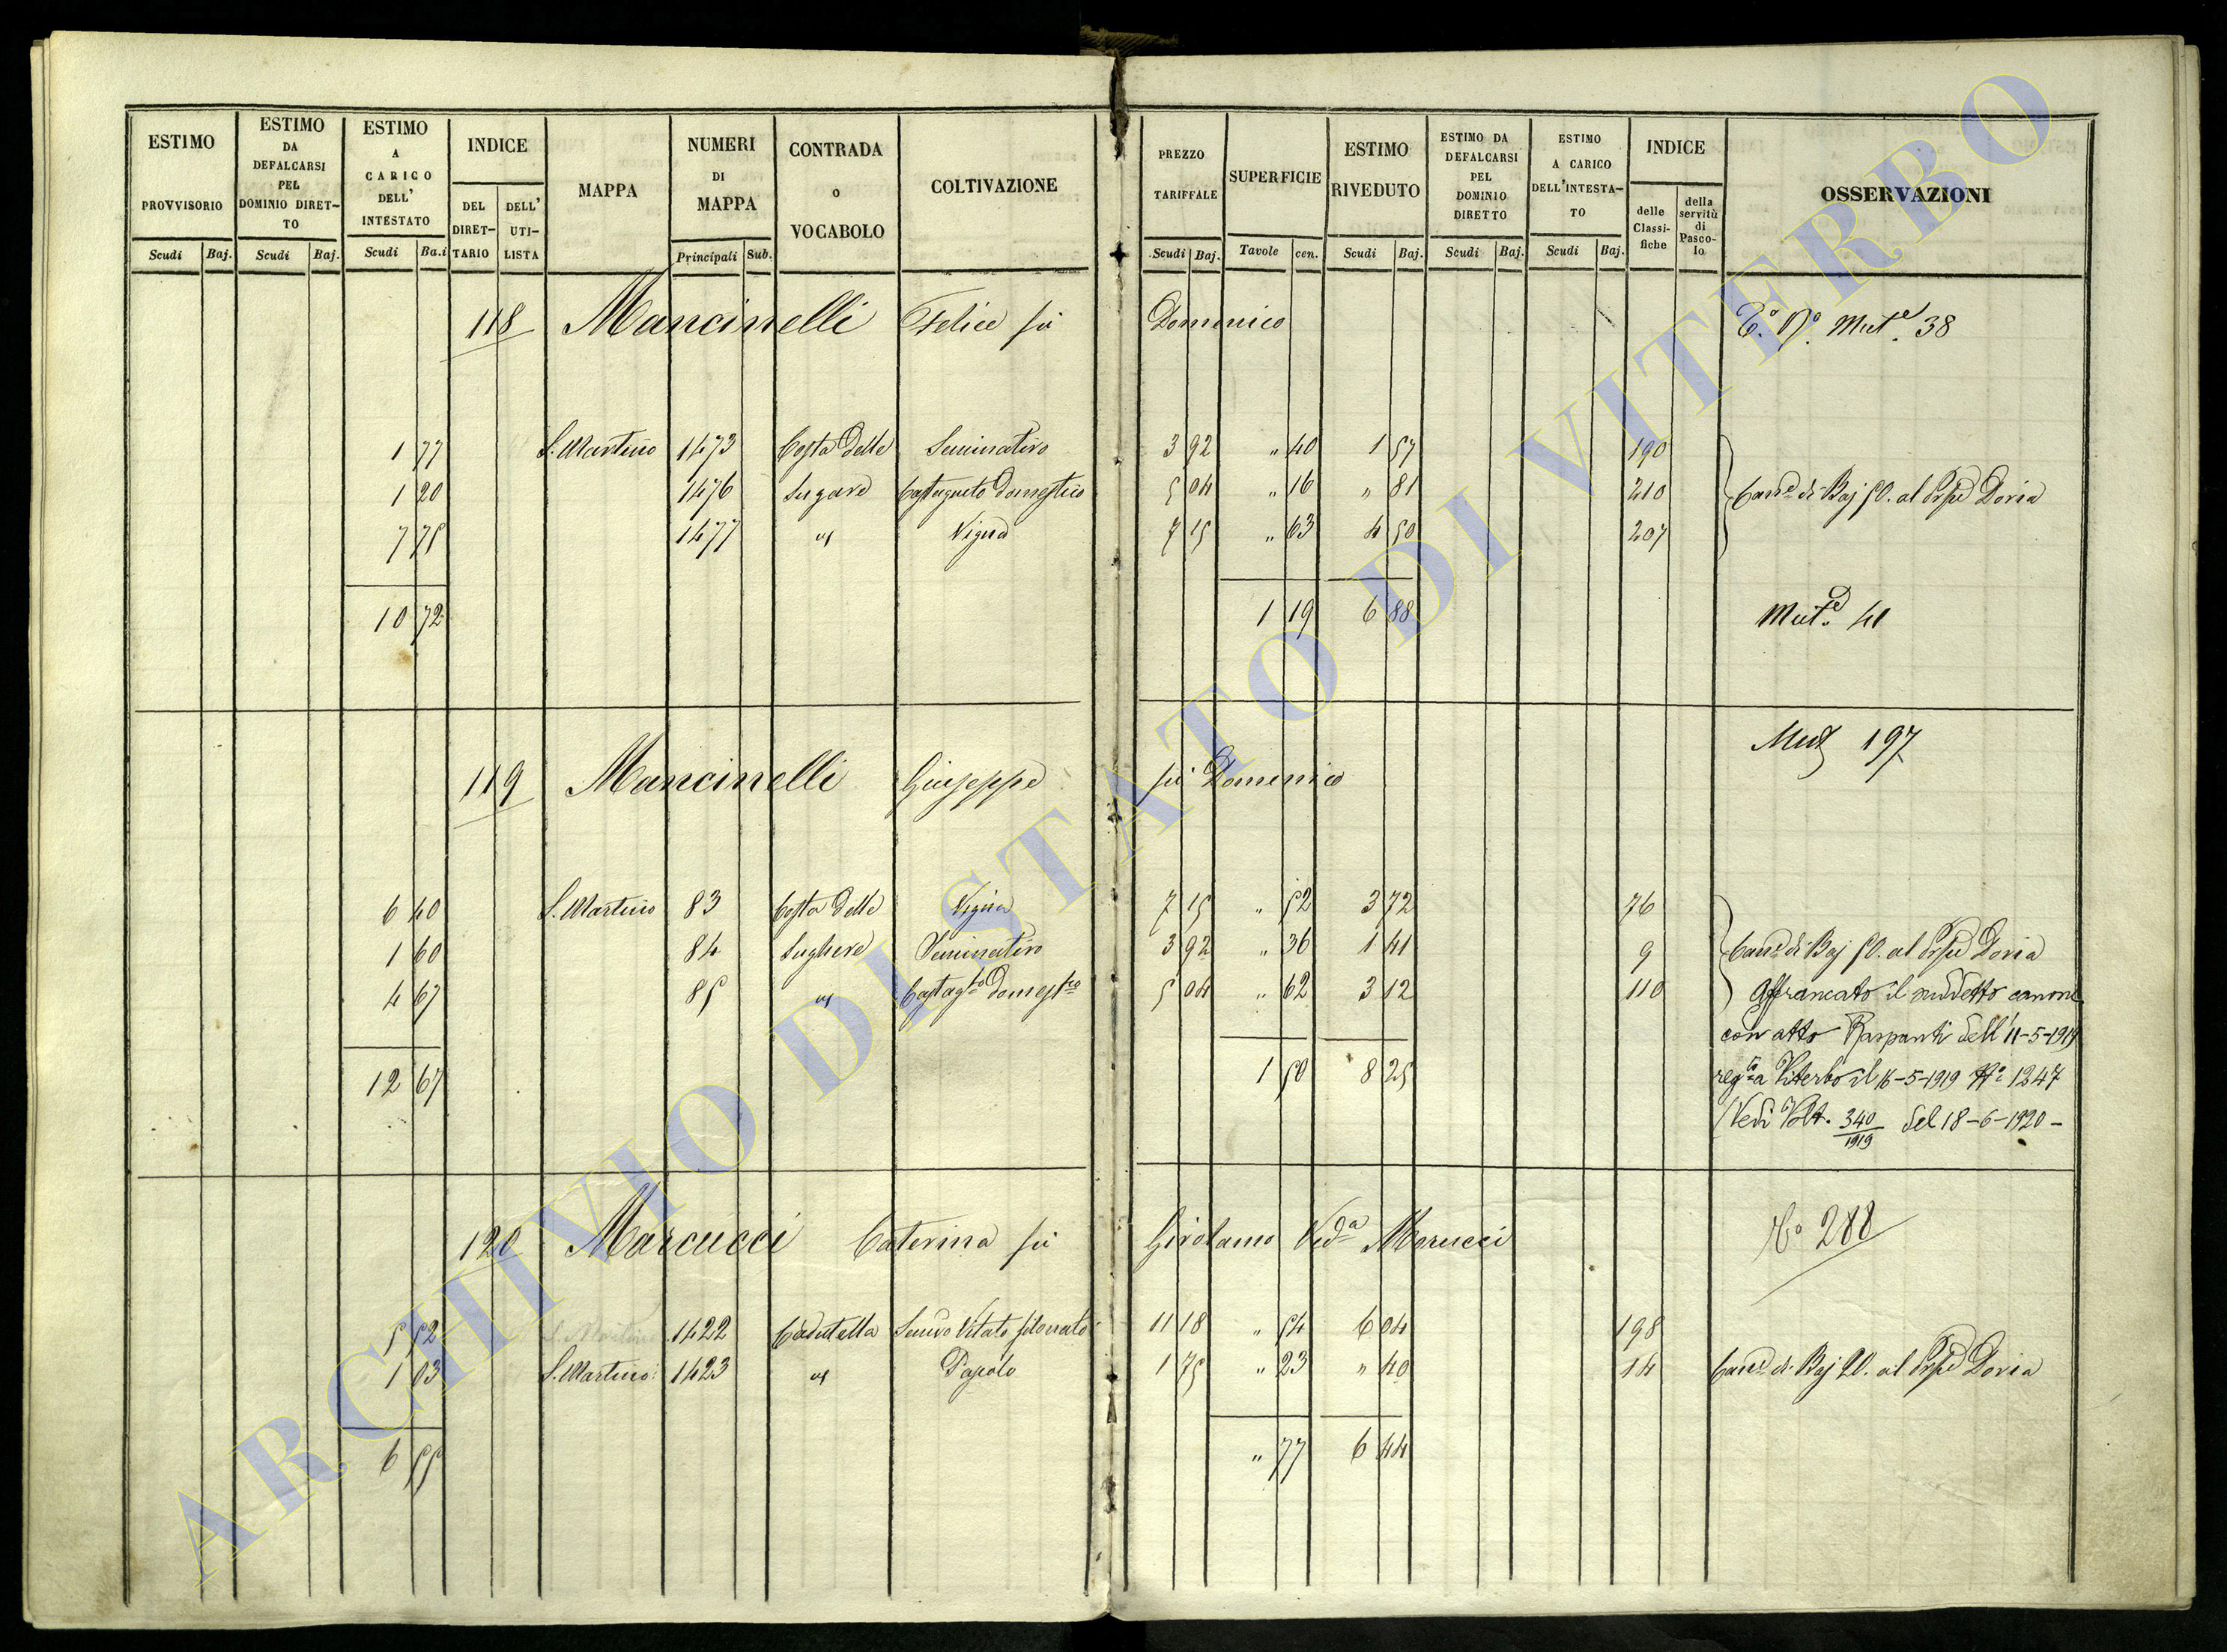 ESTIMO PROVVISORIO Scudi Baj.
ESTIMO DA DEFALCARSI PEL DOMINIO DIRET-TO Scudi Baj.
ESTIMO A CARICO DELL' INTESTATO Scudi Ba.i
INDICE DEL DIRET-TARIO DELL' UTI-LISTA
MAPPA
NUMERI DI MAPPA Principali Sub.
CONTRADA O VOCABOLO
COLTIVAZIONE
PREZZO TARIFFALE Scudi Baj.
SUPERFICIE Tavole cen.
ESTIMO RIVEDUTO Scudi Baj.
ESTIMO DA DEFALCARSI PEL DOMINIO DIRETTO Scudi Baj.
ESTIMO A CARICO DELL'INTESTA-TO Scudi Baj.
INDICE delle Classi-fiche della servitù di Pasco-lo
OSSERVAZIONI
118 Mancinelli Felice fù Domenico Mut.e 38
1 77 S. Martino 1473 Costa delle Seminativo 3 92 " 40 1 57 190
1 20 1476 Sugare Castagneto domestico 5 04 " 16 " 81 210 Can.e di Baj 50. al Prpe Doria
7 75 1477 " Vigna 7 15 " 63 4 50 207
10 72 1 19 6 88 Mut.e 41
Mut 197
119 Mancinelli Giuseppe fù Domenico
6 40 S. Martino 83 Costa delle Vigna 7 15 " 52 3 72 76
1 60 84 Sughere Seminativo 3 92 " 36 1 41 9 Can.e di Baj 50. al Prpe Doria
4 67 85 " Castag.to domest.co 5 04 " 62 3 12 110 Affrancato il suddetto canone
con atto Raspanti dell'11-5-1919
12 67 1 50 8 25 reg.to a Viterbo il 16-5-1919 N.o 1247
(Vedi Volt. 340/1919 del 18-6-1920-
120 Marcucci Caterina fù Girolamo Ved.a Marucci No 288
5 52 S. Martino 1422 Cadutella Semivo Vitato filonato 11 18 " 54 6 04 198
1 03 S. Martino 1423 " Pascolo 1 75 " 23 " 40 14 Can.e di Baj 20. al Prpe Doria
6 55 " 77 6 44
ARCHIVIO DI STATO DI VITERBO